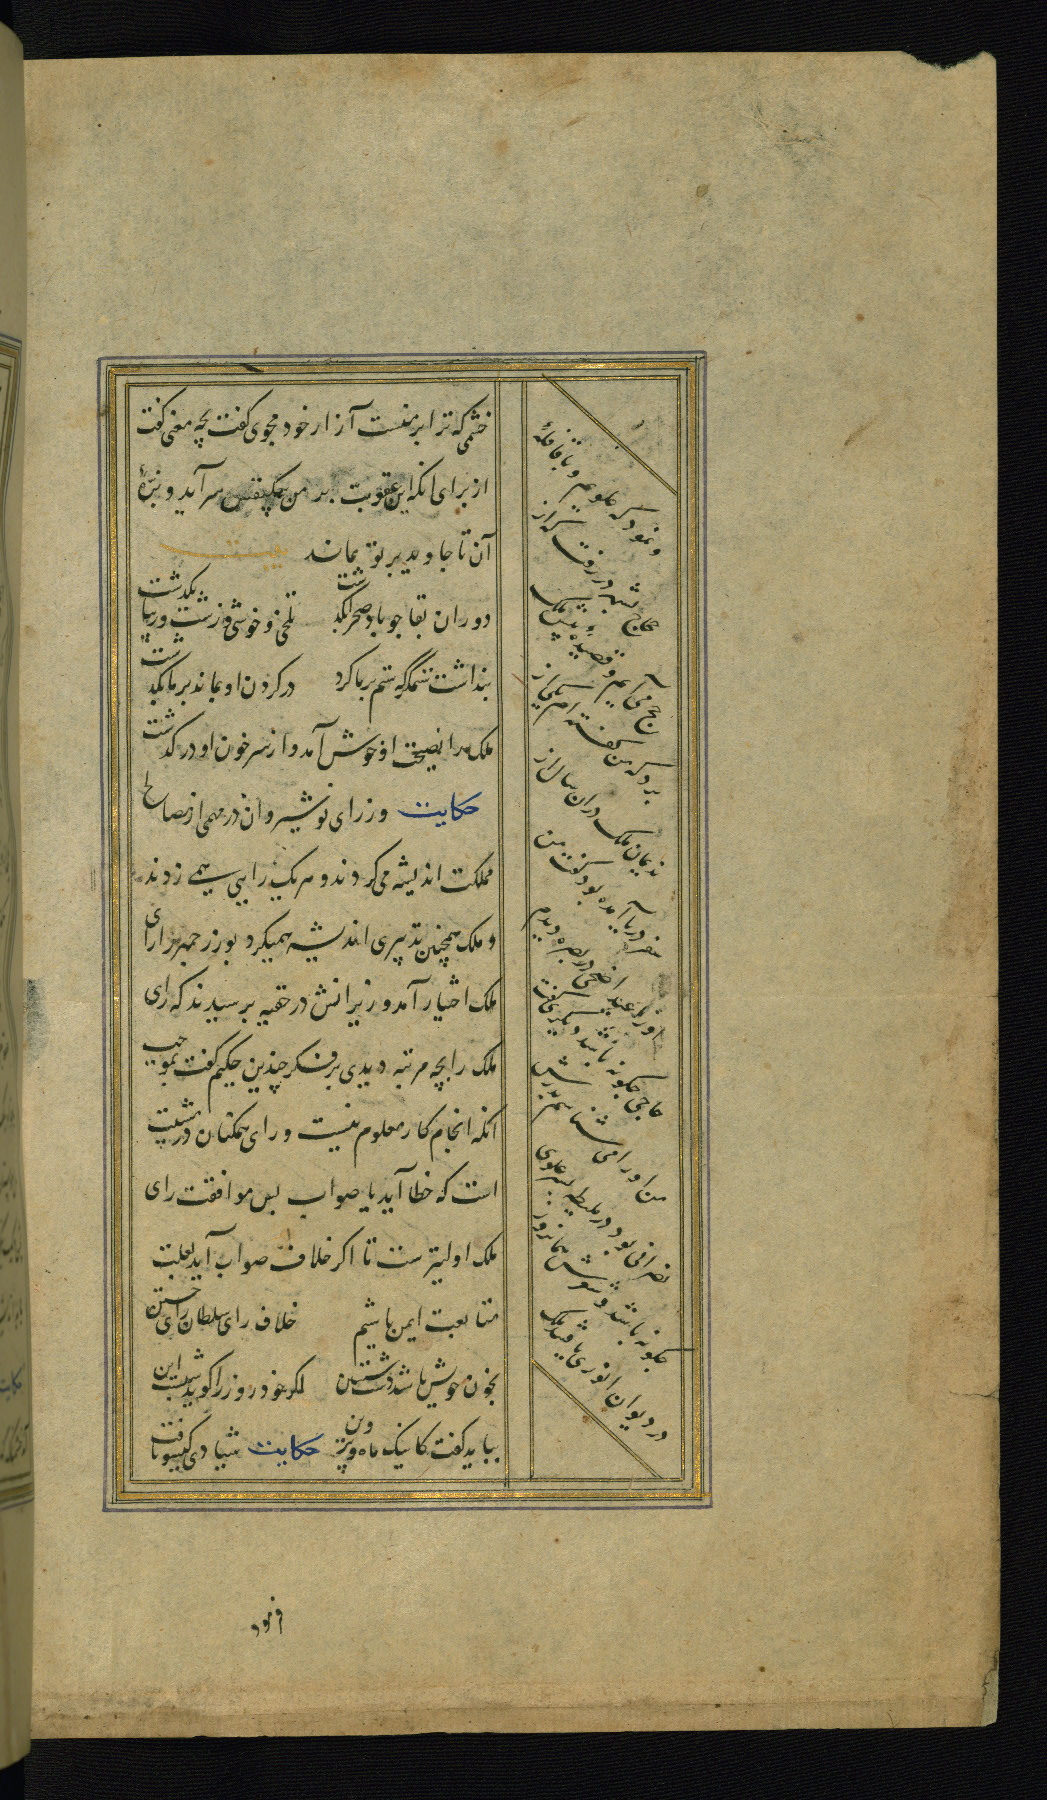 خشمی که ترا بر منست آزار خود مجوی گفت بچه معنی گفت
از برای انکه این عقوبت بر من بیکنفس سر آید و بزهٔ
آن تا جاوید بر تو بماند بیت
دوران بقا چو باد صحرا بگذشت تلخی و خوشی و زشت و زیبا بگذشت
پنداشت ستمگر که ستم بر ما کرد در گردن او بماند بر ما بگذشت
ملک را نصیحت او خوش آمد و از سر خون او در گذشت
حکایت وزرای نوشیروان در مهمی از مصالح
مملکت اندیشه می کردند و هر یک رایی همی زدند
و ملک همچنین تدبیری اندیشه همیکرد بوزرجمهر را رای
ملک اختیار آمد وزیرانش در خفیه پرسیدند که رای
ملک را بچه مرتبه دیدی بر فکر چندین حکیم گفت بموجب
انکه انجام کار معلوم نیست و رای همکنان در مشیت
است که خطا آید یا صواب پس موافقت رای
ملک اولیتر ست تا اگر خلاف صواب آید بعلت
متابعت ایمن باشیم خلاف رای سلطان رای جستن
بخون خویش باشد دست شستن اگر خود روز را گوید شبست این
بباید گفت کاینک ماه و پروین حکایت شیادی گیسو بافت
و نمود که علویم و با قافلهٔ
حجاج بشهر در رفت که از
حج می آیم و قصیدهٔ پیش ملک
برد که من گفته ام یکی از
ندیمان ملک دران سال از
سفر دریا آمده بود گفت من
او را عید اضحی در بصره دیدم
حاجی چگونه باشد دیگری گفت
من او را می شناسم پدرش
نصرانی بود در ملطیه پس علوی
چگونه باشد و شعرش همانروز
در دیوان انوری یافتند ملک
فرمود